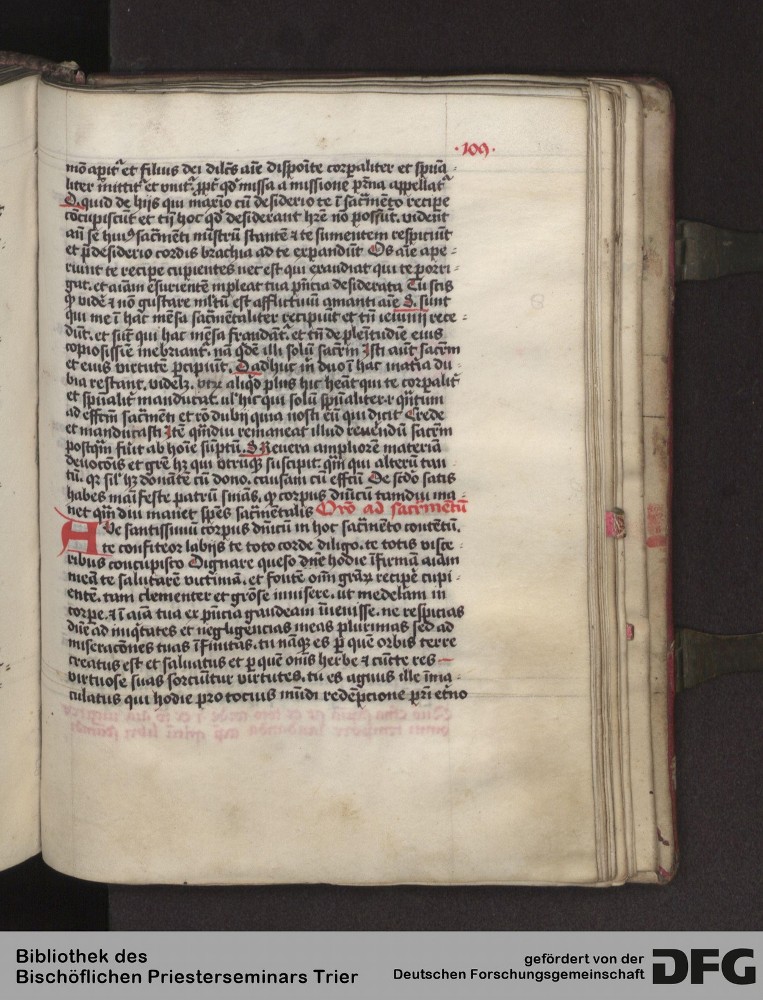 ·109·
mō apit᷑ et filius dei dilc̄s aīe dispoīte corpaliter et spūa
liter īmittit᷑ et unit᷑. ꝓpt᷑ qd᷑ missa a missione p̄ma appellat᷑
D. quid de hijs qui maxīo cū desiderio te ī sacr̄mento recipe
cōcupiscūt et tn̄ hoc qd᷑ desiderant hr̄e nō possūt. vidēt
an̄ se huiꝰ sacr̄menti mīstrū stantē ⁊ te sumentem respiciūt
et p̄ desiderio cordis brachia ad te expandūt Os aīe ape
riunt te recipe cupientes nec est qui exaudiat qui te porri
gat. et aīam esurientē impleat tua p̄ncia desiderata Tu scis
ꝙ vidē ⁊ nō gustare ml̄tū est afflictiuū amanti aīe S. sunt
qui me ī hac mēsa sacr̄mētaliter recipiūt et tn̄ ieiunij rece
dūt. et sūt qui hac mēsa fraudāt᷑. et tn̄ de plenītudīe eius
copiosissīe inebriant᷑. nā q̄dē illi solū sacr̄m Isti aūt sacr̄m
et eius virtutē p̄cipiūt. D adhuc m̄ duo ī hac mat̄ia du
bia restant. videlꝫ. vtꝝ aliqd̄ plus hic heāt qui te corpalit᷑
et spūalit᷑ manducat. ul᷑ hic qui solū spūaliter. ⁊ qn̄tum
ad effc̄m sacr̄mēti et rō dubij quia nosti eū qui dicit Crede
et manducasti Itē qm̄diu remaneat illud reuēndū sacr̄m
postqm̄ fūit ab hoīe sūptū. S Reuera ampliorē materiā
deuocōis et gr̄e hꝫ qui vtrūqꝫ suscipit. qm̄ qui alterū tan
tū. qr sil᷑ hꝫ donātē cū dono. causam cū effc̄ū De scd̄o satis
habes maīfeste patrū snīas. ꝙ corpus dīcū tamdiu ma
net qm̄ diu manet spēs sacr̄mētalis Orō ad sacrmētū
Ave sanctissimū corpus dn̄icū in hoc sacr̄mēto contētū.
te confiteor labijs te toto corde diligo. te totis visce
ribus concupisco Dignare queso dn̄e hodie īfirmā aīam
meā te salutarē victimā. et fontē om̄i gr̄aꝝ recipe᷑ cupi
entē. tam clementer et gr̄ose inuisere. ut medelam in
corpe. ⁊ ī aīa tua ex p̄ncia gaudeam īuenisse. ne respicias
dn̄e ad iniq̄tates et negligencias meas plurimas sed ad
miseracōnes tuas īfinitas. tu nāqꝫ es p̄ quē orbis terre
creatus est et saluatus et p̄ quē om̄is herbe ⁊ cūcte res
virtuose suas sorciūtur virtutes. tu es agnus ille īma
culatus qui hodie pro tocius mūdi redēpcione pr̄i et̄no
Bibliothek des
Bischöflichen Priesterseminars Trier
gefördert von der
Deutschen Forschungsgemeinschaft
DFG